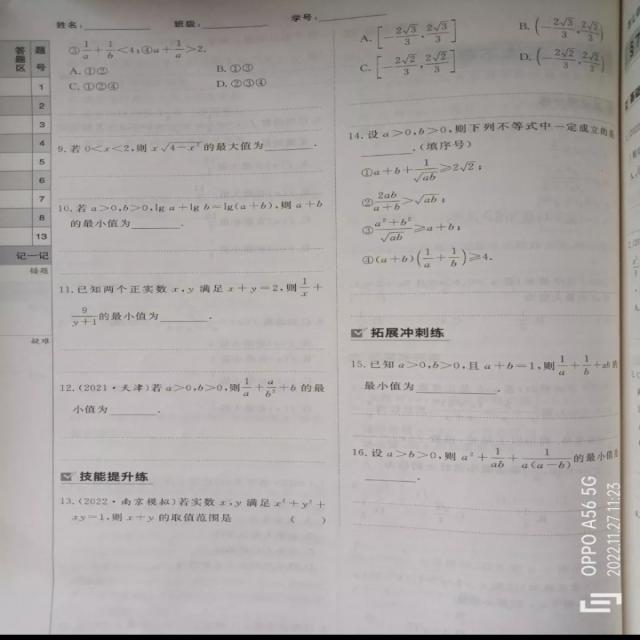 姓名: 班级: 学号:
答题区 题号
1
2
3
4
5
6
7
8
13
记一记
错题
疑难
③1/a+1/b<4;④a+1/a>2.
A.①② B.①③
C.①②④ D.②③④
9.若0<x<2,则x√(4-x²)的最大值为______.
10.若a>0,b>0,lg a+lg b=lg(a+b),则a+b
的最小值为______.
11.已知两个正实数x,y满足x+y=2,则1/x+
9/(y+1)的最小值为______.
12.(2021·天津)若a>0,b>0,则1/a+a/b²+b的最
小值为______.
技能提升练
13.(2022·南京模拟)若实数x,y满足x²+y²+
xy=1,则x+y的取值范围是 ( )
A.[-2√3/3,2√3/3] B.(-2√3/3,2√3/3)
C.[-2√2/3,2√2/3] D.(-2√2/3,2√2/3)
14.设a>0,b>0,则下列不等式中一定成立的
______.(填序号)
①a+b+1/√ab≥2√2;
②2ab/(a+b)>√ab;
③(a²+b²)/√ab≥a+b;
④(a+b)(1/a+1/b)≥4.
拓展冲刺练
15.已知a>0,b>0,且a+b=1,则1/a+1/b+ab的
最小值为______.
16.设a>b>0,则a²+1/ab+1/a(a-b)的最小值
______.
OPPO A56 5G
2022.11.27 11:23